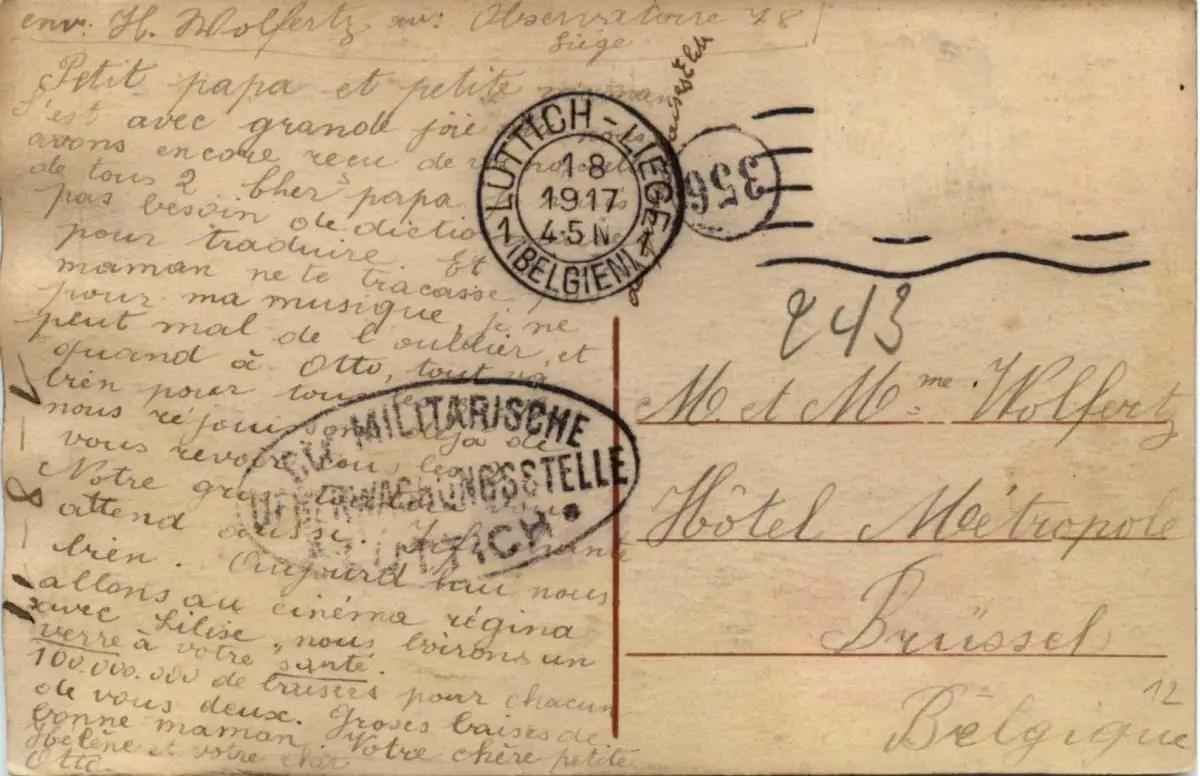 env: H. Wolfertz av: Observatoire 78
Liége
Petit papa et petite maman
C'est avec grande joie que nous
avons encore reçu de vos nouvelles
de tous 2. Cher papa
pas besoin de dictio
pour traduire. Et
maman ne te tracasse
pour ma musique, je ne
peut mal de l'oublier, et
quand à Otto, tout va
bien pour tous
nous réjouissons déjà de
vous revoir tous les
Notre
attend aussi.
bien. Aujourd'hui nous
allons au cinéma régina
avec Lilise, nous boirons un
verre à votre santé.
100.000.000 de baisers pour chacun
de vous deux. Groses baises de
bonne maman. Votre chère petite
Hélène et votre cher
Otto
1-8-17
LÜTTICH - LIEGE
1 8
1917
4-5 N.
1 (BELGIEN) 1
356
MILITÄRISCHE
UEBERWACHUNGSSTELLE
LÜTTICH
243
M. et Mme Wolfertz
Hôtel Métropole
Brüssel
Belgique
12